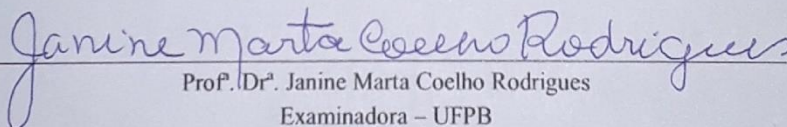 Janine Marta Coelho Rodrigues
Profª. Drª. Janine Marta Coelho Rodrigues
Examinadora – UFPB